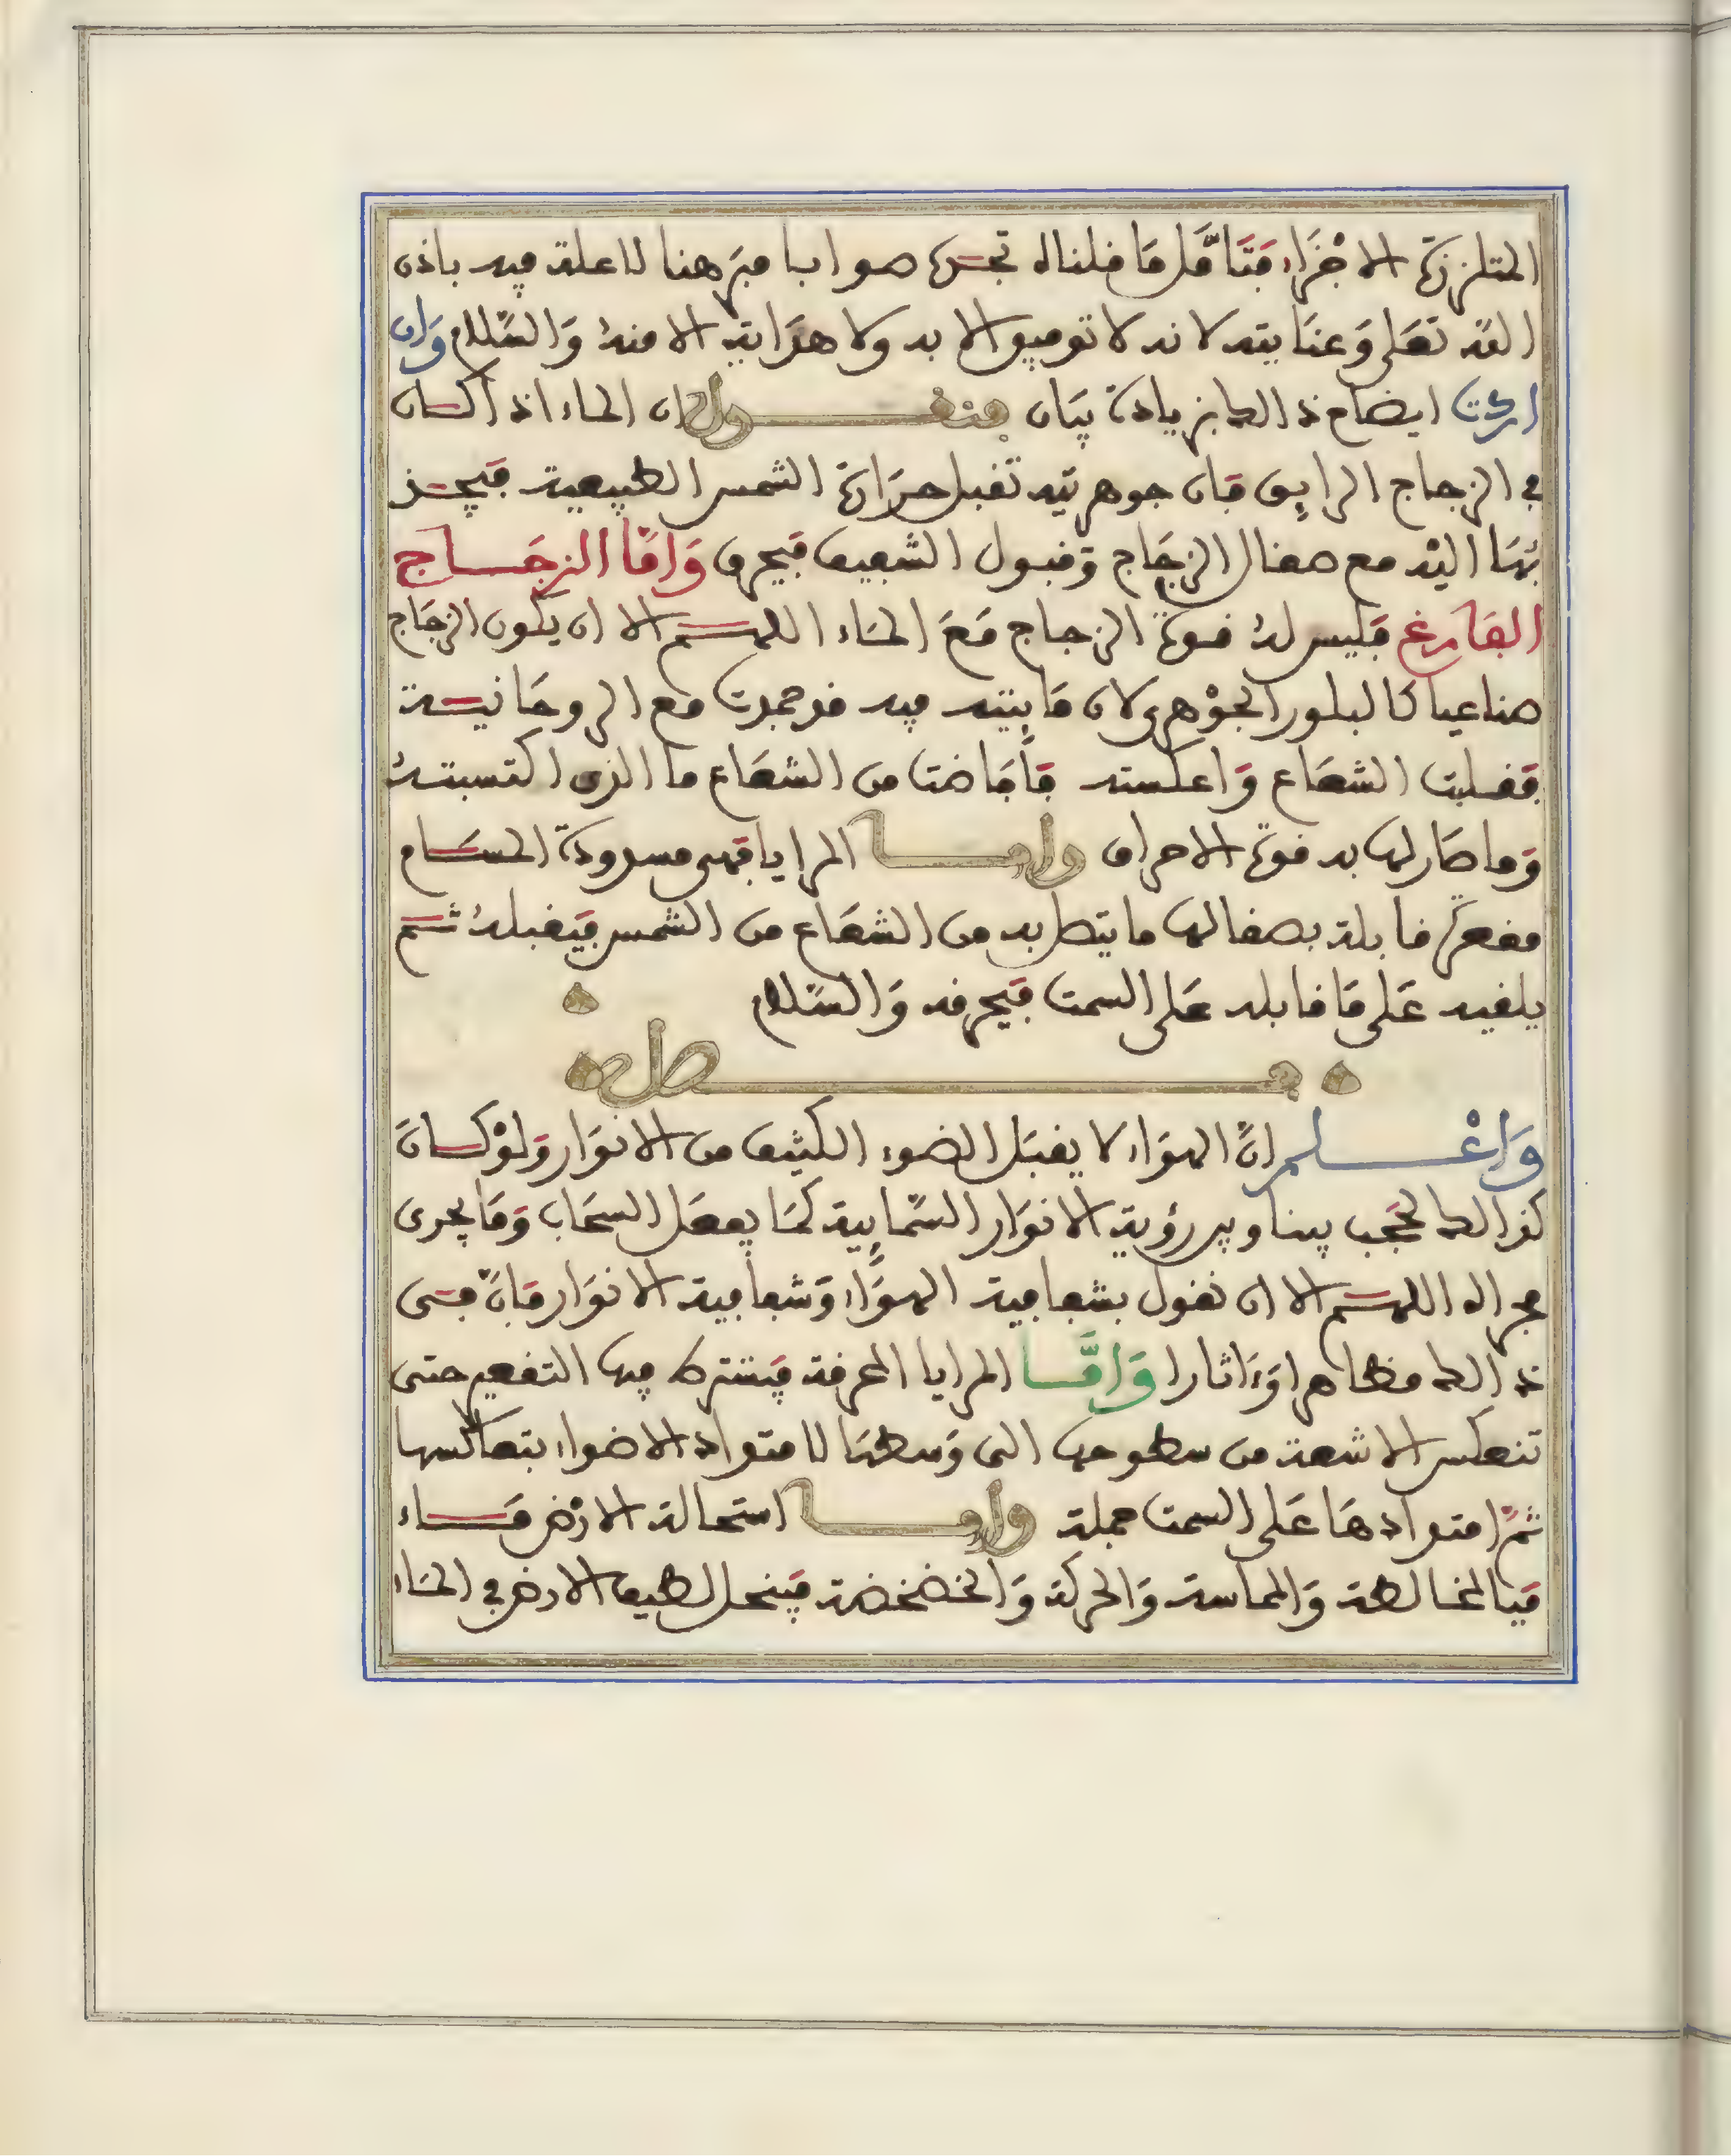 المتلززة الاجْزَاء فَتَامَّل مَا قلناه تجده صوابا مبَرهنا لا علة فيه باذن
الله تَعَلى وَعنَايته لانه لا توفيق الا به ولا هدَاية الا منهُ وَالسَّلام وَان
اردت ايضاح ذالك بزيادة بيَان فنقـــول ان الماء اذا كان
في الزجاج الرايق فَان جوهريته تقبل حرَارة الشمس الطبيعية فيَجـذ
بُهَا اليْه مع صقال الزجَاج وَقبول الشفيف فيَحرق وَامَّا الزجَـــاج
الفَارغ فَليس لهُ قوة الزجاج مَعَ المَاء اللهـــم الا ان يكون الزجَاج
صناعيا كالبلور الجوْهرى لان مَايته فيه قد جمدت مع الروحَانيـة
فقبلت الشعَاع وَاعكسته فأفَاضت من الشعَاع ما الذى اكتسبتـهُ
وَما صَار لها به قوة الاحراق وامـــا المرايا فهى مسدودة المســـام
مقعرَة قابلة بصقالها ما يتصل به من الشعَاع من الشمس فيَقبلهُ ثـــم
يلقيه عَلى مَا قابله عَلى السمت فيَحرقه وَالسَّلام
فـــــــصل
وَاعْـــــلم انَّ الهوَاء لا يقبَل الضوء الكثيف من الانوَار وَلوْ كـــانَ
كذالك لحَجب بيننا وبين رؤية الانوَار السَّمايية كمَا يفعَل السحَاب وَمَا يجرى
مجراه اللهـــم الا ان نقول بشفافية الهوَاء وَشفافية الانوَار فَانَّ فـى
ذالك مظاهرا وَءاثارا وَامَّـــا المرايا المحرقة فيَشترك فيها التقعير حتى
تنعكس الاشعة من سطوحها الى وَسطهَا لامتداد الاضواء بتعاكسها
ثمَّ امتدادهَا عَلى السمت جملة وامـــا استحالة الارْض مَـــاء
فبَالمخالطة وَالمماسة وَالحركة وَالخضخضة فيَنحل لطيف الارض في المَاء